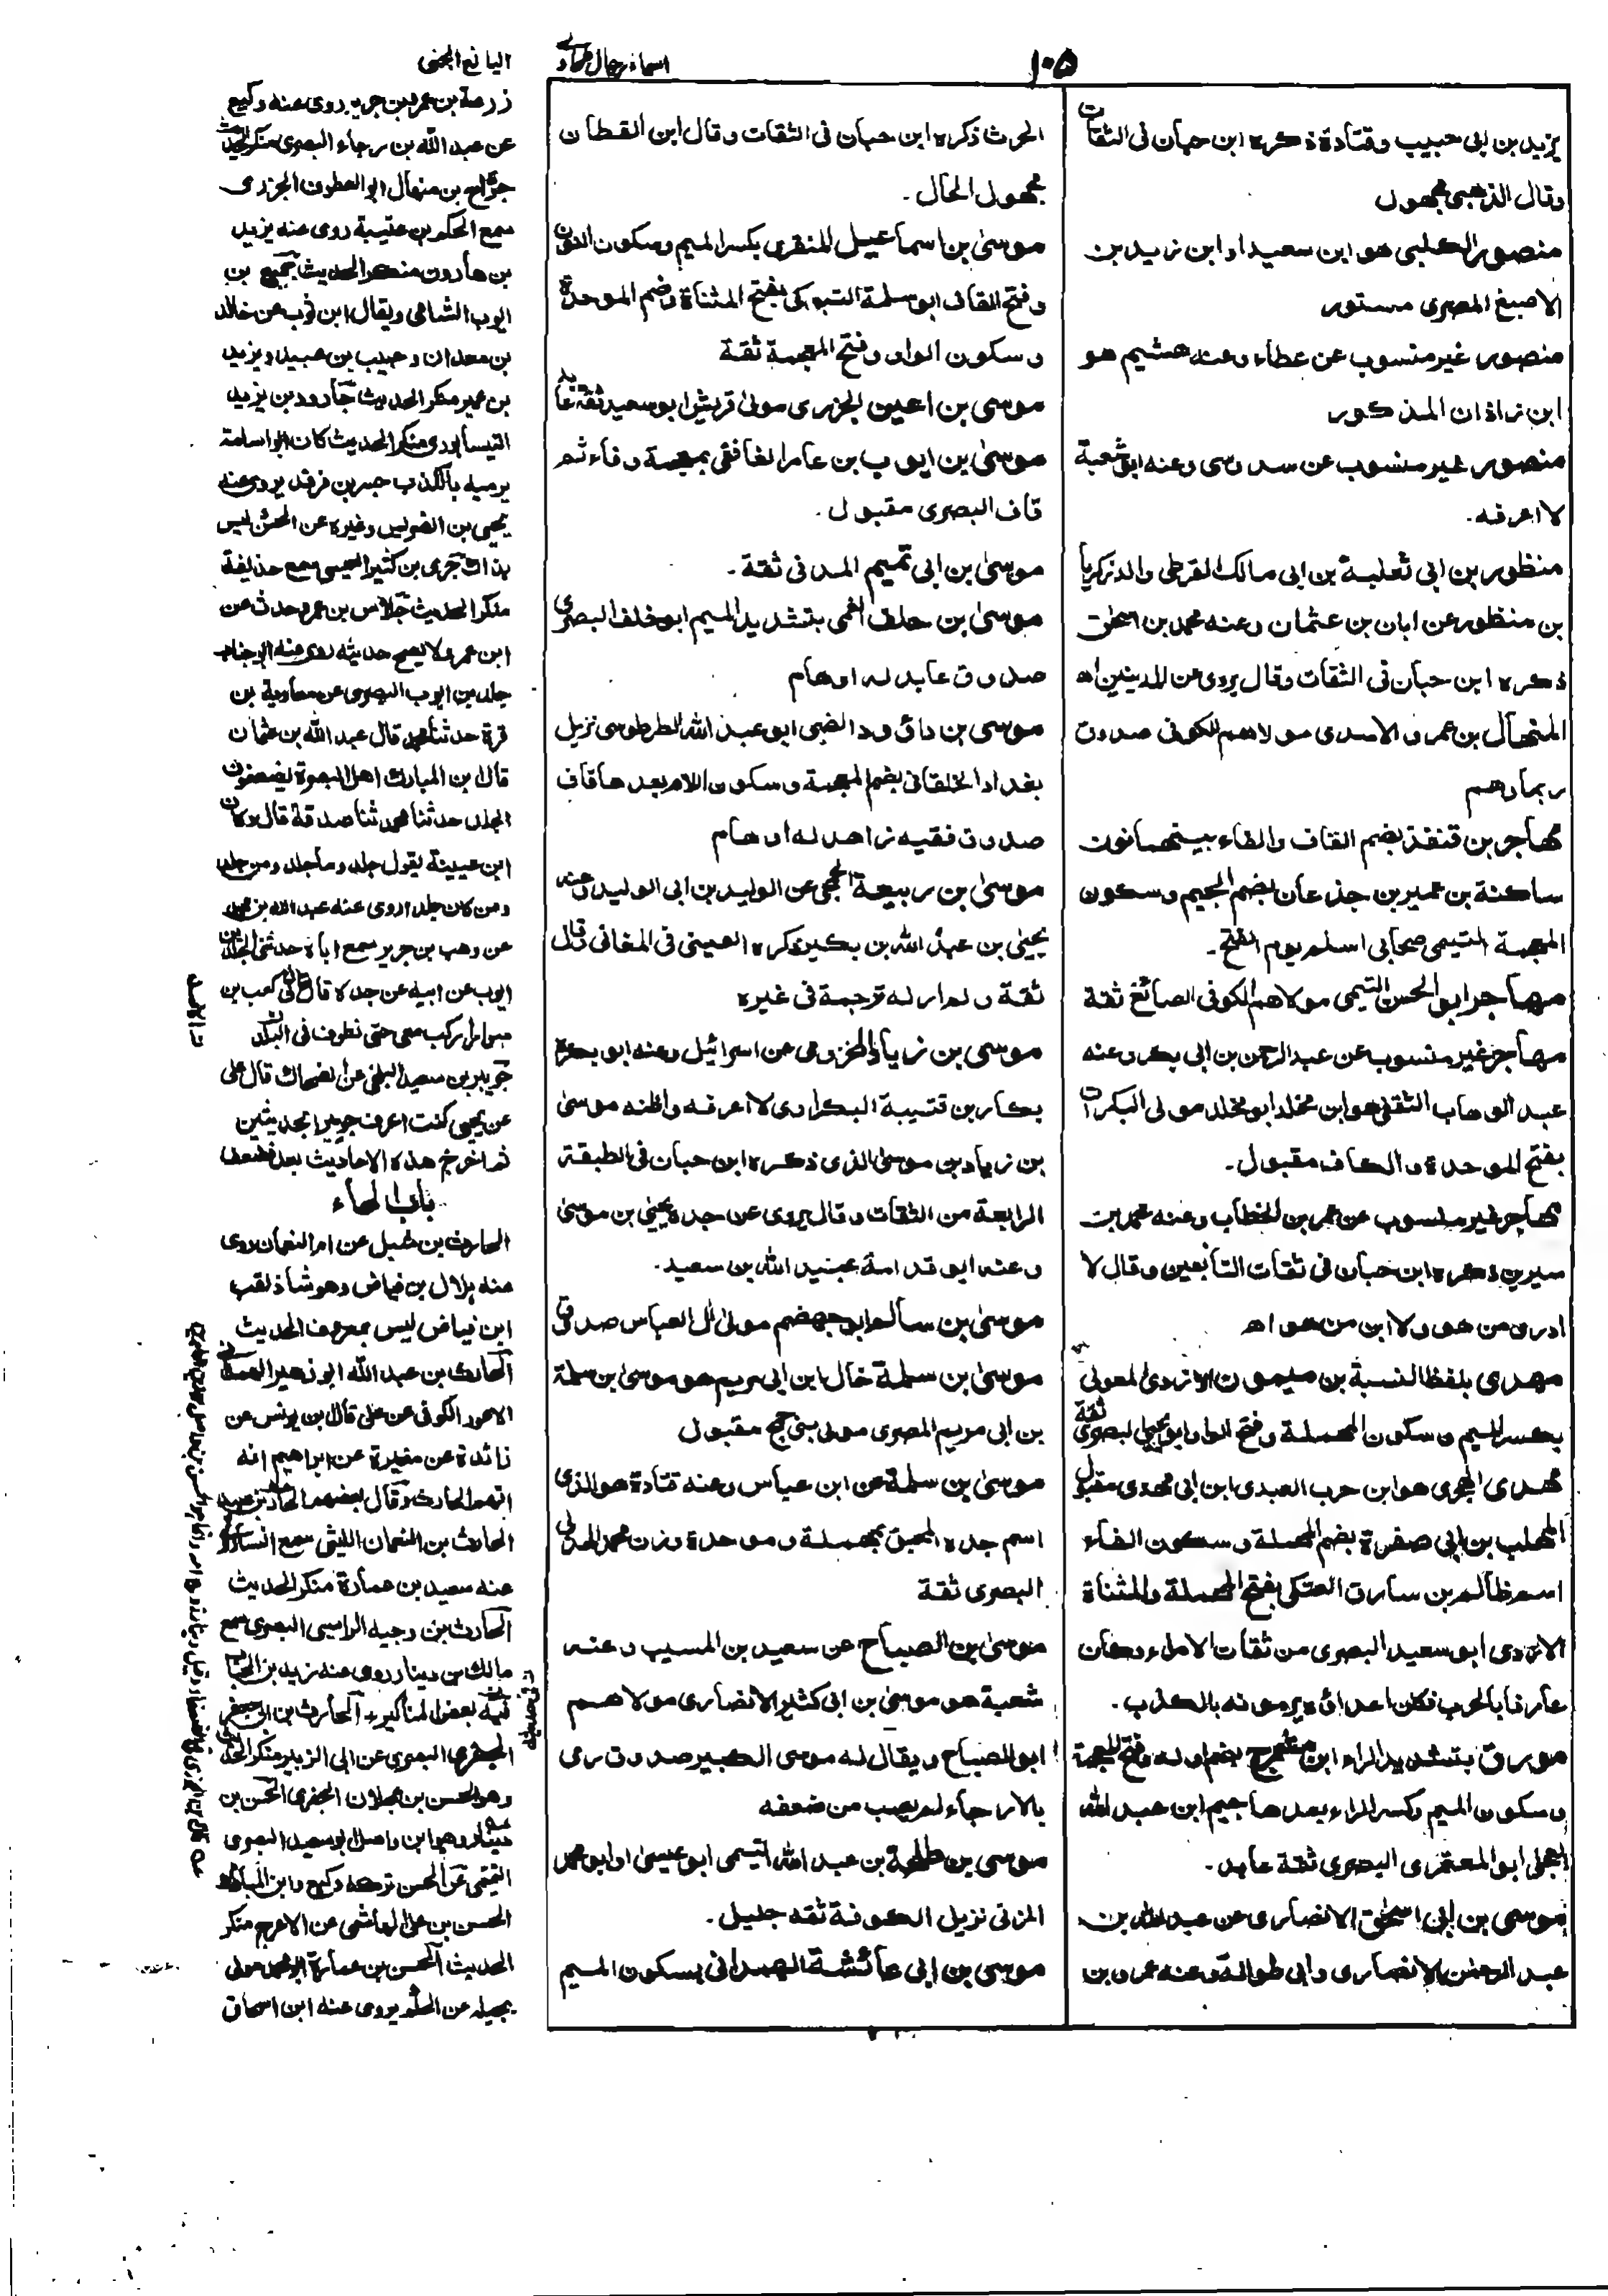 ١٠٥
اسماء رجال طحاوى
اليانع الجنى
يزيد بن ابى حبيب وقتادة ذكره ابن حبان فى الثقات
وقال الذهبى مجهول
منصور الكلبى هو ابن سعيد او ابن زيد بن
الاصبغ المصرى مستور
منصور غير منسوب عن عطاء وعنه هشيم هو
ابن زاذان المذكور
منصور غير منسوب عن سدوسى وعنه ابن شعبة
لا اعرفه.
منظور بن ابى ثعلبة بن ابى مالك القرظى والد زكريا
بن منظور عن ابان بن عثمان وعنه محمد بن اسحٰق
ذكره ابن حبان فى الثقات وقال يروى عن المدينين اه
المنهال بن عمرو الاسدى مولاهم الكوفى صدوق
ربما وهم
مهاجر بن قنفذ بضم القاف والفاء بينهما نون
ساكنة بن عمير بن جذعان بضم الجيم وسكون
المعجمة التيمى صحابى اسلم يوم الفتح.
مهاجر ابو الحسن التيمى مولاهم الكوفى الصائغ ثقة
مهاجر غير منسوب عن عبد الرحمن بن ابى بكر وعنه
عبد الوهاب الثقفى هو ابن مخلد ابو مخلد مولى البكرات
بفتح الموحدة والكاف مقبول.
مهاجر غير منسوب عن عمر بن الخطاب وعنه محمد بن
سيرين ذكره ابن حبان فى ثقات التابعين وقال لا
ادرى من هو ولا ابن من هو اه
مهدى بلفظ النسبة بن ميمون الازدى المعولى
بكسر الميم وسكون المهملة وفتح الواو ابو يحيى البصرى ثقة
مهدى الهجرى هو ابن حرب العبدى ابن ابى مهدى مقبول
المهلب بن ابى صفرة بضم المهملة وسكون الفاء
اسمه ظالم بن سارق العتكى بفتح المهملة والمثناة
الازدى ابو سعيد البصرى من ثقات الامراء وكان
عارفا بالحرب فكان اعداؤه يرمونه بالكذب.
مورق بتشديد الراء ابن مشمرج بضم اوله وفتح المعجمة
وسكون الميم وكسر الراء بعدها جيم ابن عبد الله
العجلى ابو المعتمرى البصرى ثقة عابد.
موسى بن ابى اسحٰق الانصارى عن عبد الله بن
عبد الرحمن الانصارى وابى طوالة وعنه عمرو بن
الحرث ذكره ابن حبان فى الثقات وقال ابن القطان
مجهول الحال.
موسىٰ بن اسماعيل المنقرى بكسر الميم وسكون النون
وفتح القاف ابو سلمة التبوذكى بفتح المثناة وضم الموحدة
وسكون الواو وفتح المعجمة ثقة
موسى بن اعين الجزرى مولى قريش ابو سعيد ثقة عابد
موسىٰ بن ايوب بن عامر الغافقى بمعجمة وفاء ثم
قاف البصرى مقبول.
موسىٰ بن ابى تميم المدنى ثقة.
موسىٰ بن خلف العمى بتشديد الميم ابو خلف البصرى
صدوق عابد له اوهام
موسىٰ بن داؤد الضبى ابو عبد الله الطرطوسى نزيل
بغداد الخلقانى بضم المعجمة وسكون اللام بعدها قاف
صدوق فقيه زاهد له اوهام
موسىٰ بن ربيعة الجمحى عن الوليد بن ابى الوليد وعنه
يحيىٰ بن عبد الله بن بكير ذكره العينى فى المغانى وقال
ثقة ولم ار له ترجمة فى غيره
موسى بن زياد المخزومى عن اسرائيل وعنه ابو بكرة
بكار بن قتيبة البكراوى لا اعرفه واظنه موسىٰ
بن زياد بن موسىٰ الذى ذكره ابن حبان فى الطبقة
الرابعة من الثقات وقال يروى عن جده يحيىٰ بن موسىٰ
وعنه ابو قدامة عبيد الله بن سعيد.
موسىٰ بن سالم ابو جهضم مولىٰ آل العباس صدوق
موسىٰ بن سلمة خال ابن ابى مريم هو موسىٰ بن سلمة
بن ابى مريم المصرى مولى بنى جمح مقبول
موسىٰ بن سلمة عن ابن عباس وعنه قتادة هو الذى
اسم جده المحبق بمهملة وموحدة وزن محمد الهذلى
البصرى ثقة
موسىٰ بن الصباح عن سعيد بن المسيب وعنه
شعبة هو موسىٰ بن ابى كثير الانصارى مولاهم
ابو الصباح ويقال له موسى الكبير صدوق رمى
بالارجاء لم يصب من ضعفه
موسى بن طلحة بن عبد الله التيمى ابو عيسىٰ او ابو محمد
المزنى نزيل الكوفة ثقة جليل.
موسىٰ بن ابى عائشة الهمدانى بسكون الميم
زرعة بن عمرو بن جرير روى عنه وكيع
عن عبد الله بن رجاء البصرى منكر الحديث
جراح بن منهال ابو العطوف الجزرى
سمع الحكم بن عتيبة روى عنه يزيد
بن هارون منكر الحديث جميع بن
ايوب الشامى ويقال ابن ثوب عن خالد
بن معدان وحبيب بن عبيد ويزيد
بن عمير منكر الحديث جارود بن يزيد
النيسابورى منكر الحديث كان ابو اسامة
يرميه بالكذب جسر بن فرقد يروى عنه
يحيى بن الضريس وغيره عن الحسن ليس
بذاك جرى بن كثير سمع حذيفة
منكر الحديث جلاس بن عمرو حدث عن
ابن عمر ولا يصح حديثه روى عنه ابو جناب
جلد بن ايوب البصرى عن معاوية بن
قرة حدثنا محمد قال عبد الله بن عثمان
قال ابن المبارك اهل البصرة يضعفون
الجلد حدثنا محمد ثنا صدقة قال وكان
ابن عيينة يقول جلد وما جلد ومن جلد
ومن كان جلد اروى عنه عبد الله بن
عن وهب بن جرير سمع اباه حدثنى الجلد بن
ايوب عن ابيه عن جده قال قال لى كعب بن
سوار اركب معى حتى نطوف فى البلد
جويبر بن سعيد البلخى عن الضحاك قال على
عن يحيى كنت اعرف جويبرا بحديثين
ثم اخرج هذه الاحاديث بعد فضعف
باب الحاء
الحارث بن شبل عن ام النعمان روى
عنه هلال بن فياض وهو شاذ لقب
ابن فياض ليس بمعروف الحديث
الحارث بن عبد الله ابو زهير الهمدانى
الاعور الكوفى عن على قال بن يونس عن
زائدة عن مغيرة عن ابراهيم انه
اتهم الحارث وقال بعضهم الحارث بن عبيد
الحارث بن النعمان الليثى سمع انسا روى
عنه سعيد بن عمارة منكر الحديث
الحارث بن وجيه الراسبى البصرى سمع
مالك بن دينار روى عنه زيد بن الحباب
فيه بعض المناكير، الحارث بن ابى جعفر
الجعفرى البصرى عن ابى الزبير منكر الحديث
وهو الحسن بن عجلان الجفرى الحسن بن
دينار وهو ابن واصل ابو سعيد البصرى
التميمى عن الحسن تركه وكيع وابن المبارك
الحسن بن على الهاشمى عن الاعرج منكر
الحديث الحسن بن عمارة ابو محمد مولى
بجيلة عن الحكم يروى عنه ابن اسحاق